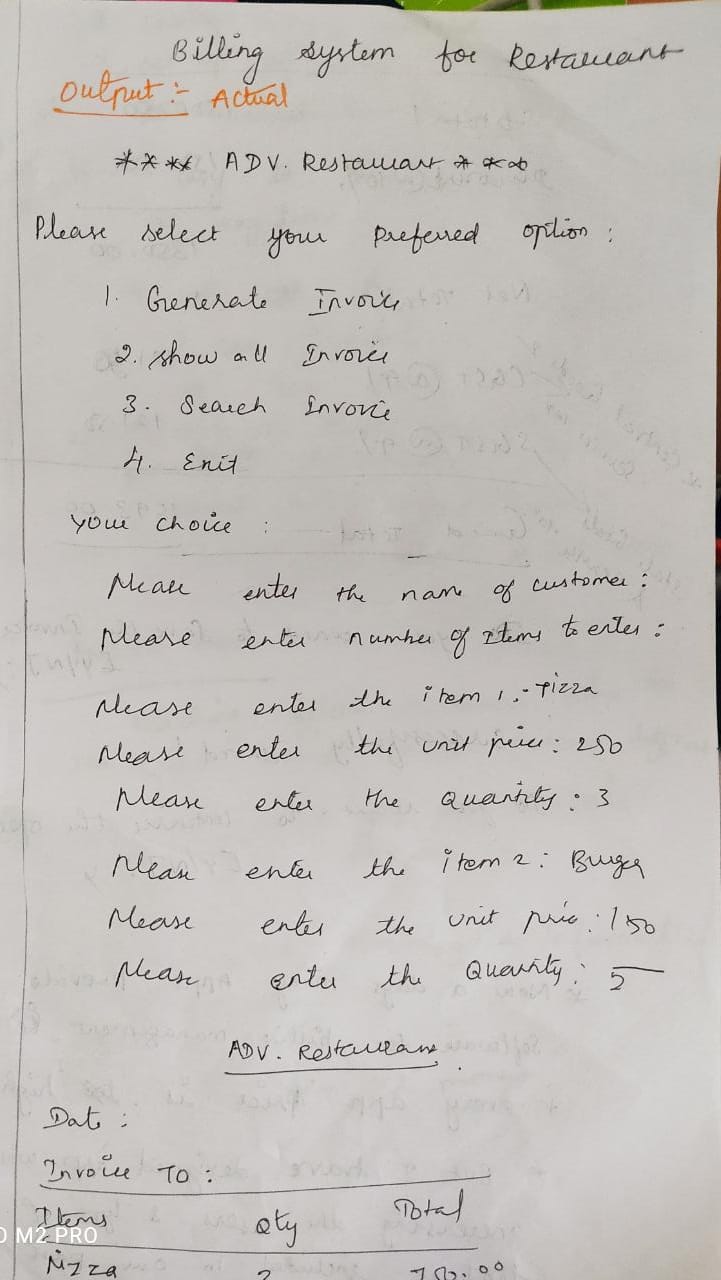 Billing system for Restaurant
Output :- Actual
**** ADV. Restaurant ****
Please select your preferred option :
1. Generate Invoice
2. show all Invoice
3. Search Invoice
4. Exit
your choice :
Please enter the name of customer :
Please enter number of Items to enter :
Please enter the item 1 :- Pizza
Please enter the unit price : 250
Please enter the Quantity : 3
Please enter the item 2 : Burger
Please enter the unit price : 150
Please enter the Quantity : 5
ADV. Restaurant
Date :
Invoice To :
Items Qty Total
M2 PRO
Pizza 3 750.00